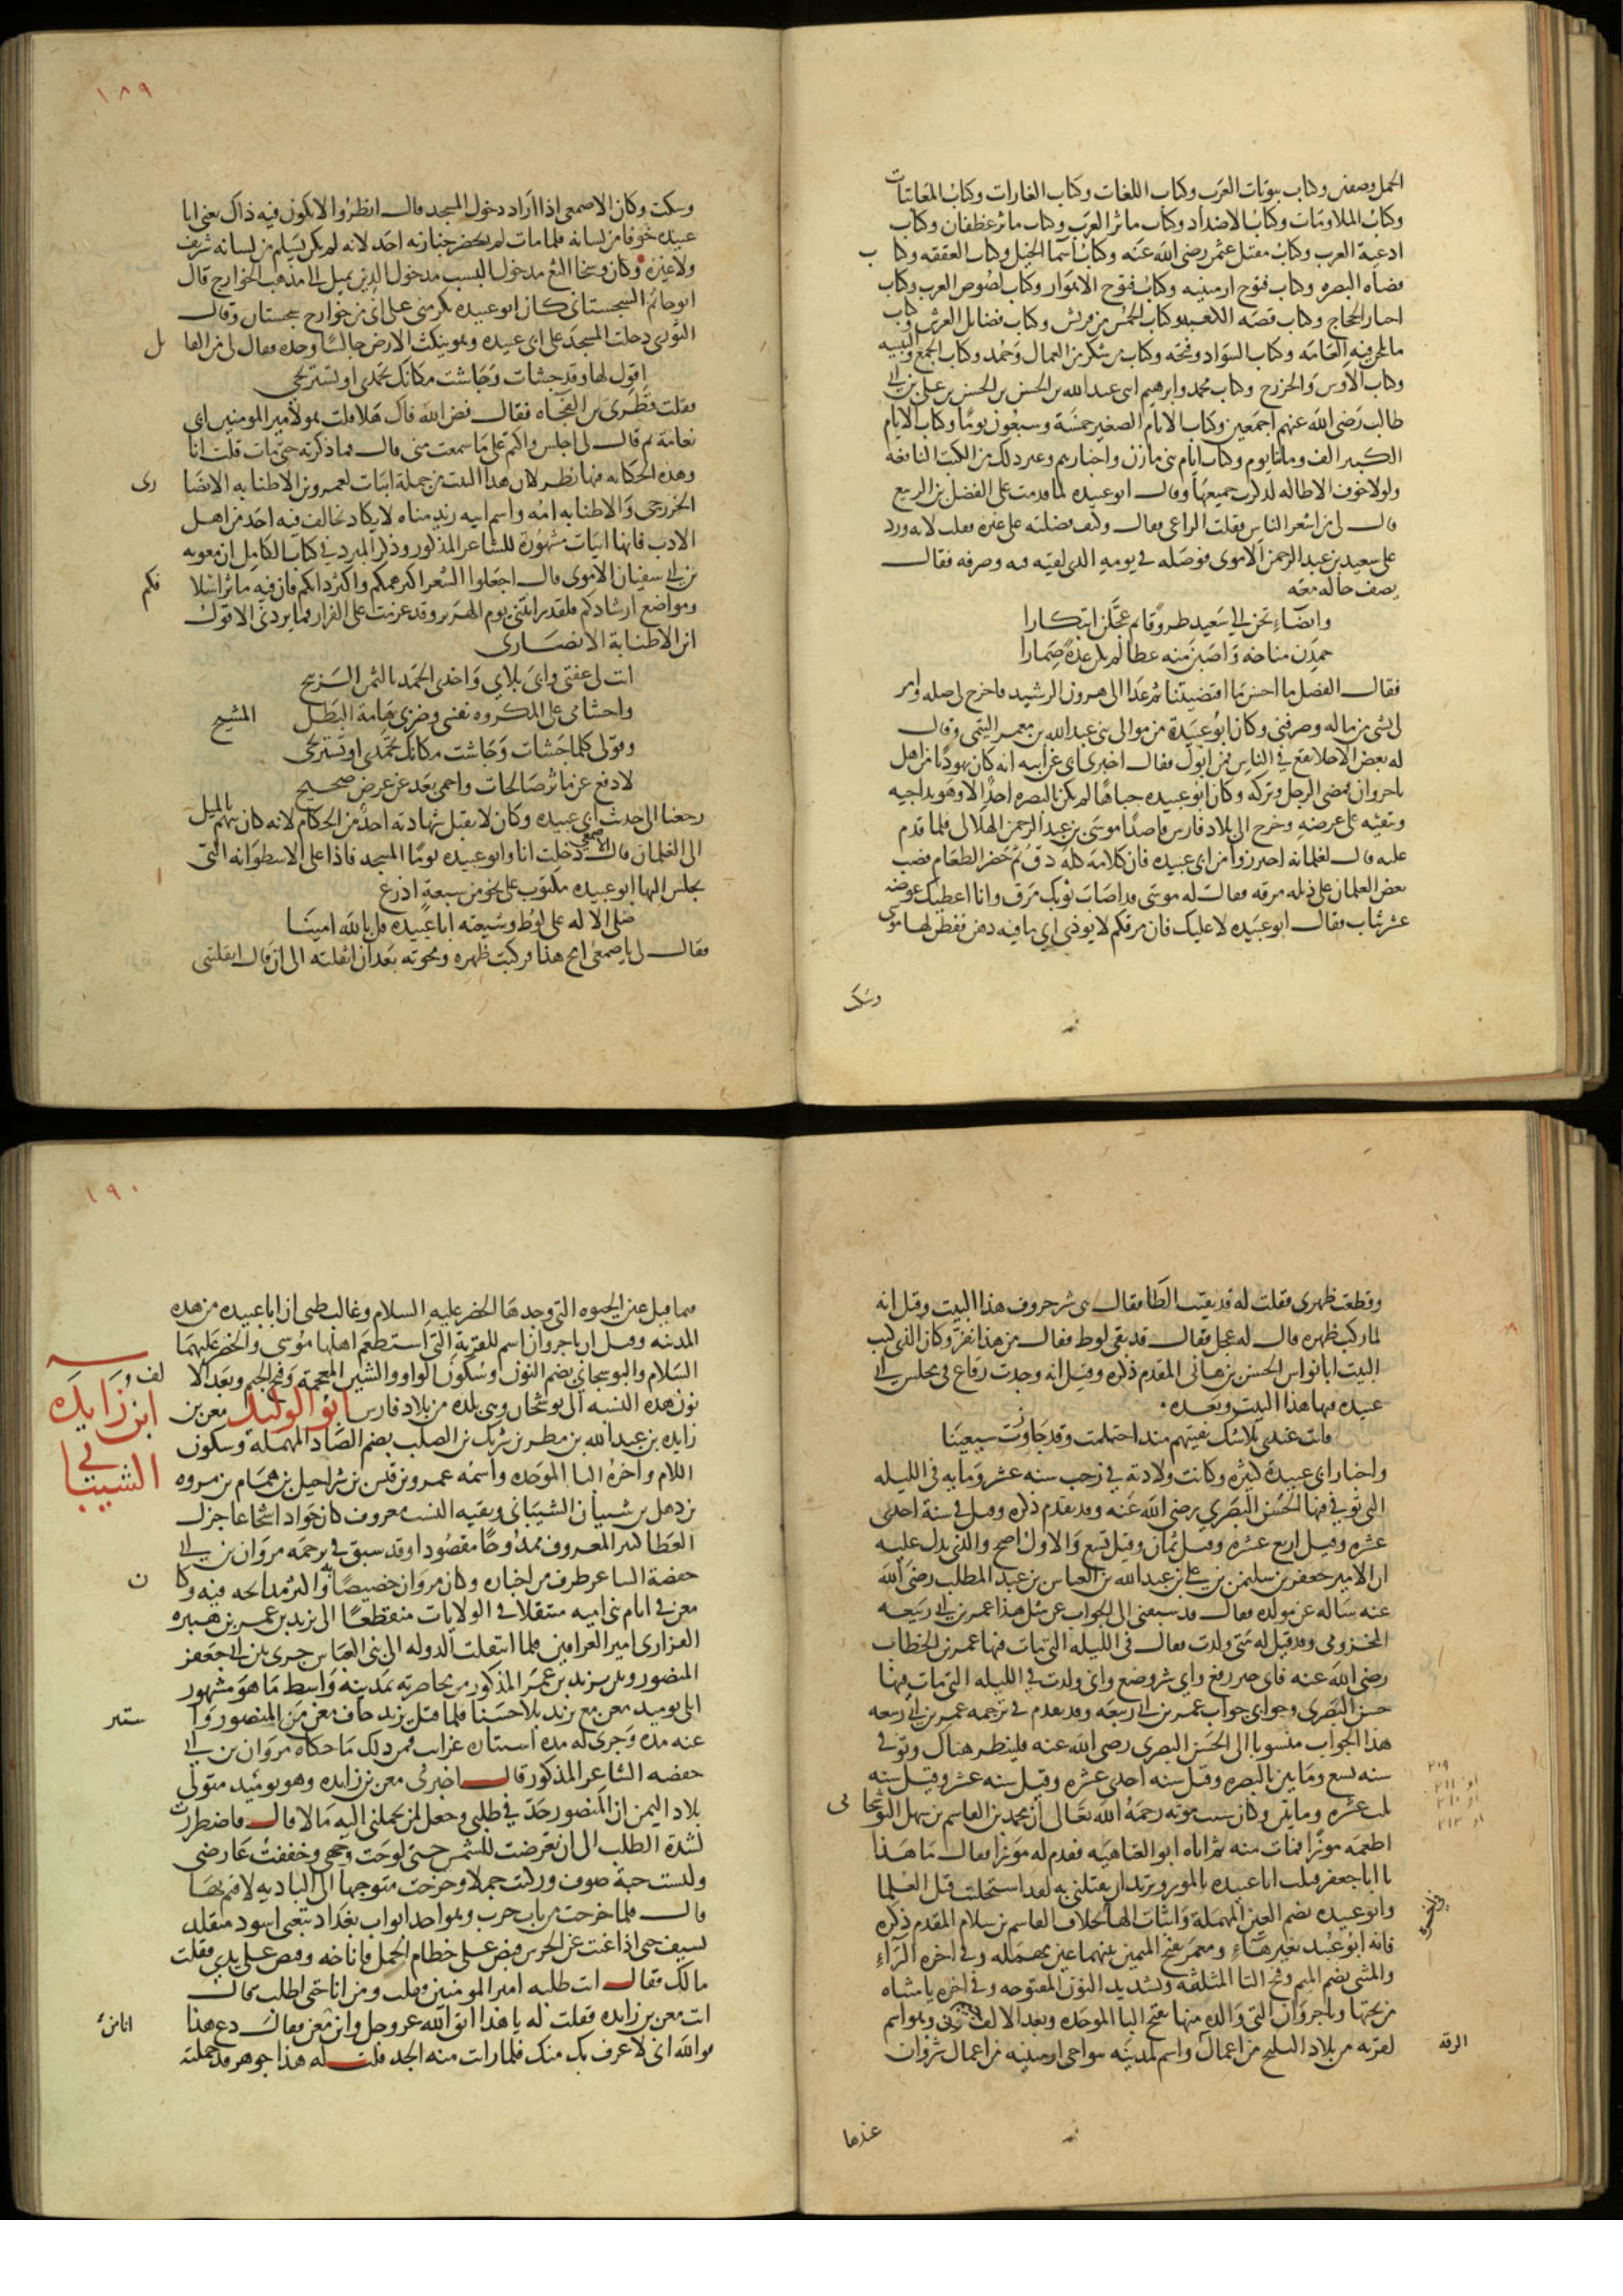 الجمل وصفين وكتاب بيوتات العرب وكتاب اللغات وكتاب الغارات وكتاب المعاتبات
وكتاب الملاومات وكتاب الاضداد وكتاب ماثر العرب وكتاب ماثر غطفان وكتاب
ادعية العرب وكتاب مقتل عثمن رضى الله عنه وكتاب اسما الخيل وكتاب العققه وكتاب
قضاه البصره وكتاب فتوح ارمينيه وكتاب فتوح الاهواز وكتاب لصوص العرب وكتاب
اخبار الحجاج وكتاب قصه الكعبه وكتاب الحمس من قريش وكتاب فضايل الفرش وكتاب
ما تلحن فيه العامه وكتاب السواد وفتحه وكتاب من شكر من العمال وحمد وكتاب الجمع والتثنيه
وكتاب الاوس والخزرج وكتاب محمد وابرهيم ابنى عبد الله بن الحسن بن الحسن بن على بن ابى
طالب رضى الله عنهم اجمعين وكتاب الايام الصغير خمسة وسبعون يوما وكتاب الايام
الكبير الف ومائتا يوم وكتاب ايام بنى مازن واخبارهم وغير ذلك من الكتب النافعه
ولولا خوف الاطاله لذكرت جميعها وقال ابو عبيده لما قدمت على الفضل بن الربيع
قال لى من اشعر الناس فقلت الراعى فقال وكيف فضلته على غيره فقلت لانه ورد
على سعيد بن عبد الرحمن الاموى فوصله فى يومه الذى لقيه فيه وصرفه فقال
يصف حاله معه
وانضاء تحن الى سعيد طروقا ثم عجلن ابتكارا
حمدن مناخه واصبن منه عطا لم يكن عدة ضمارا
فقال الفضل ما احسن ما اقتضيتنا ثم غدا الى هرون الرشيد فاخرج لى صله وامر
لى بشى من ماله وصرفنى وكان ابو عبيدة من موالى بنى عبد الله بن معمر التيمى وقال
له بعض الاجلا تقع فى الناس فمن ابوك فقال اخبرنى ابى عن ابيه انه كان يهوديا من اهل
باجروان فمضى الرجل وتركه وكان ابو عبيده جباها لم يكن بالبصره احد الا وهو يداجيه
ويتقيه على عرضه وخرج الى بلاد فارس قاصدا موسى بن عبد الرحمن الهلالى فلما قدم
عليه قال لغلمانه احترزوا من ابى عبيده فان كلامه كله دق ثم حضر الطعام فصب
بعض الغلمان على ذيله مرقه فقال له موسى قد اصاب ثوبك مرق وانا اعطيك عوضه
عشر ثياب فقال ابو عبيده لا عليك فان مرقكم لا يوذى اى ما فيه دهن ففطن لها موسى
وسكت
١٨٩
وسكت وكان الاصمعى اذا اراد دخول المسجد قال انظروا لا يكون فيه ذاك يعنى ابا
عبيده خوفا من لسانه فلما مات لم يحضر جنازته احد لانه لم يكن يسلم من لسانه شريف
ولا غيره وكان وسخا الثغ مدخول النسب مدخول الدين يميل الى مذهب الخوارج قال
ابو حاتم السجستانى كان ابو عبيده يكرمنى على انى من خوارج سجستان وقال
الثورى دخلت المسجد على ابى عبيده وهو ينكث الارض جالسا وحده فقال لى من القايل
اقول لها وقد جشات وجاشت مكانك تحمدى او تستريحى
فقلت قطرى بن الفجاه فقال فض الله فاك هلا قلت هو لامير المومنين ابى
نعامة ثم قال لى اجلس واكتم على ما سمعت منى قال فما ذكرته حتى مات قلت انا
وهذه الحكايه فيها نظر لان هذا البيت من جملة ابيات لعمرو بن الاطنابه الانصارى
الخزرجى والاطنابه امه واسم ابيه زيد مناه لا يكاد يخالف فيه احد من اهل
الادب فانها ابيات مشهورة للشاعر المذكور وذكر المبرد فى كتاب الكامل ان معويه
بن ابى سفيان الاموى قال اجعلوا الشعر اكبر همكم واكثر دابكم فان فيه ماثر اسلافكم
ومواضع ارشادكم فلقد رايتنى يوم الهرير وقد عزمت على الفرار فما يردنى الا قول
ابن الاطنابة الانصارى
ابت لى عفتى وابى بلاى واخذى الحمد بالثمن الربيح
واجشامى على المكروه نفسى وضربى هامة البطل المشيح
وقولى كلما جشات وجاشت مكانك تحمدى او تستريحى
لادفع عن ماثر صالحات واحمى بعد عن عرض صحيح
رجعنا الى حديث ابى عبيده وكان لا يقبل شهادته احد من الحكام لانه كان يتهم بالميل
الى الغلمان قال الاصمعى دخلت انا وابو عبيده يوما المسجد فاذا على الاسطوانه التى
يجلس اليها ابو عبيده مكتوب على نحو من سبعة اذرع
صلى الاله على لوط وشيعته ابا عبيده قل بالله امينا
فقال لى يا اصمعى امح هذا فركبت ظهره ومحوته بعد ان اثقلته الى ان قال اثقلتنى
وقطعت ظهرى فقلت له قد بقيت الطا فقال هى شر حروف هذا البيت وقيل انه
لما ركب ظهره قال له عجل فقال قد بقى لوط فقال من هذا نفر وكان الذى كتب
البيت ابا نواس الحسن بن هانى المقدم ذكره وقيل انه وجدت رقاع فى مجلس ابى
عبيده فيها هذا البيت وبعده
فانت عندى بلا شك بقيتهم منذ احتلمت وقد جاوزت سبعينا
واخبار ابى عبيدة كثيره وكانت ولادته فى رجب سنه عشر ومايه فى الليله
التى توفى فيها الحسن البصرى رضى الله عنه وقد تقدم ذكره وقيل فى سنة احدى
عشره وقيل اربع عشره وقيل ثمان وقيل تسع والاول اصح والذى يدل عليه
ان الامير جعفر بن سليمن بن على بن عبد الله بن العباس بن عبد المطلب رضى الله
عنه ساله عن مولده فقال قد سبقنى الى الجواب عن مثل هذا عمر بن ابى ربيعه
المخزومى وقد قيل له متى ولدت فقال فى الليله التى مات فيها عمر بن الخطاب
رضى الله عنه فاى خير رفع واى شر وضع وانى ولدت فى الليله التى مات فيها
حسن البصرى وجوابى جواب عمر بن ابى ربيعه وقد تقدم فى ترجمه عمر بن ابى ربيعه
هذا الجواب منسوبا الى الحسن البصرى رضى الله عنه فلينظر هناك وتوفى
سنه تسع ومايتين بالبصره وقيل سنه احدى عشره وقيل سنه عشر وقيل سنه
ثلث عشره ومايتين وكان سبب موته رحمه الله تعالى ان محمد بن القاسم بن سهل النوشجانى
اطعمه موزا فمات منه ثم اتاه ابو العتاهيه فقدم له موزا فقال ما هذا
يا ابا جعفر قتلت ابا عبيده بالموز وتريد ان تقتلنى به لقد استحليت قتل العلما
وابو عبيده بضم العين المهملة واثبات الها بخلاف القاسم بن سلام المقدم ذكره
فانه ابو عبيد بغير هاء ومعمر بفتح الميمين بينهما عين مهمله وفى اخره الراء
والمثنى بضم الميم وفتح الثا المثلثه وتشديد النون المفتوحه وفى اخره يا مثناه
من تحتها وباجروان التى والده منها بفتح البا الموحده وبعد الالف وهو اسم
لقريه من بلاد البليخ من اعمال الرقه واسم لمدينه بنواحى ارمينيه من اعمال شروان
٢٠٩
او ٢١١
او ٢١٠
او ٢١٣
عندها
١٩٠
فيما قيل عين الحيوه التى وجدها الخضر عليه السلام وغالب ظنى ان ابا عبيده من هذه
المدينه وقيل ان باجروان اسم للقرية التى استطعم اهلها موسى والخضر عليهما
السلام والنوشجانى بضم النون وسكون الواو والشين المعجمة وفتح الجيم وبعد الالف
نون هذه النسبه الى نوشجان وهى بلده من بلاد فارس ابو الوليد معن بن
ابن زايده
الشيبانى
زايده بن عبد الله بن مطر بن شريك بن الصلب بضم الصاد المهمله وسكون
اللام واخره البا الموحده واسمه عمرو بن قيس بن شراحيل بن همام بن مره
بن ذهل بن شيبان الشيبانى وبقيه النسب معروف كان جوادا شجاعا جزل
العطا كثير المعروف ممدوحا مقصودا وقد سبق فى ترجمه مروان بن ابى
حفصة الشاعر طرف من اخباره وكان مروان خصيصا به واكثر مدايحه فيه وكان
معن فى ايام بنى اميه متنقلا فى الولايات منقطعا الى يزيد بن عمر بن هبيره
الفزارى امير العراقين فلما انتقلت الدوله الى بنى العباس جرى بين ابى جعفر
المنصور وبين يزيد بن عمر المذكور من محاصرته بمدينه واسط ما هو مشهور
ابلى يوميذ معن مع يزيد بلا حسنا فلما قتل يزيد خاف معن من المنصور واستتر
عنه مدة وجرى له مدة استتاره غرايب فمن ذلك ما حكاه مروان بن ابى
حفصه الشاعر المذكور قال اخبرنى معن بن زايده وهو يوميذ متولى
بلاد اليمن ان المنصور جد فى طلبى وجعل لمن يحملنى اليه مالا قال فاضطررت
لشدة الطلب الى ان تعرضت للشمس حتى لوحت وجهى وخففت عارضى
ولبست جبة صوف وركبت جملا وخرجت متوجها الى الباديه لاقيم بها
قال فلما خرجت من باب حرب وهو احد ابواب بغداد تبعنى اسود متقلد
بسيف حتى اذا غبت عن الحرس قبض على خطام الجمل فاناخه وقبض على يدى فقلت
مالك فقال انت طلبه امير المومنين فقلت ومن انا حتى اطلب فقال
انت معن بن زايده فقلت له يا هذا اتق الله عز وجل واين انا من معن فقال دع هذا
فوالله انى لاعرف بك منك فلما رايت منه الجد قلت له هذا جوهر قد حملته